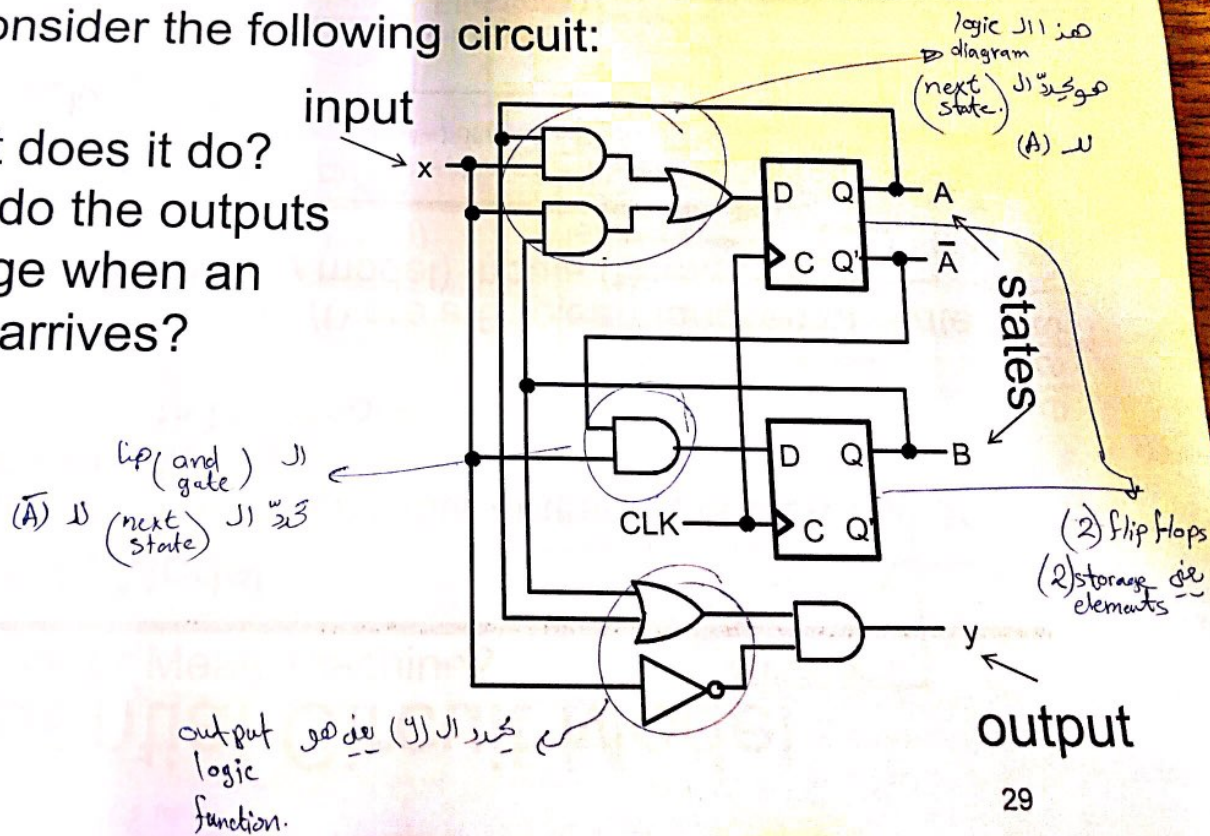 onsider the following circuit:
input
t does it do?
do the outputs
ge when an
arrives?
x
D Q
C Q'
A
A̅
states
D Q
C Q'
B
CLK
y
output
29
هذا ال logic
diagram
(next
state.)
لل (A)
ال (and
gate)
ال (next
state) لل (A̅)
(2) flip flops
يعني (2) storage
elements
يحدد ال (y) يعني هو output
logic
function.